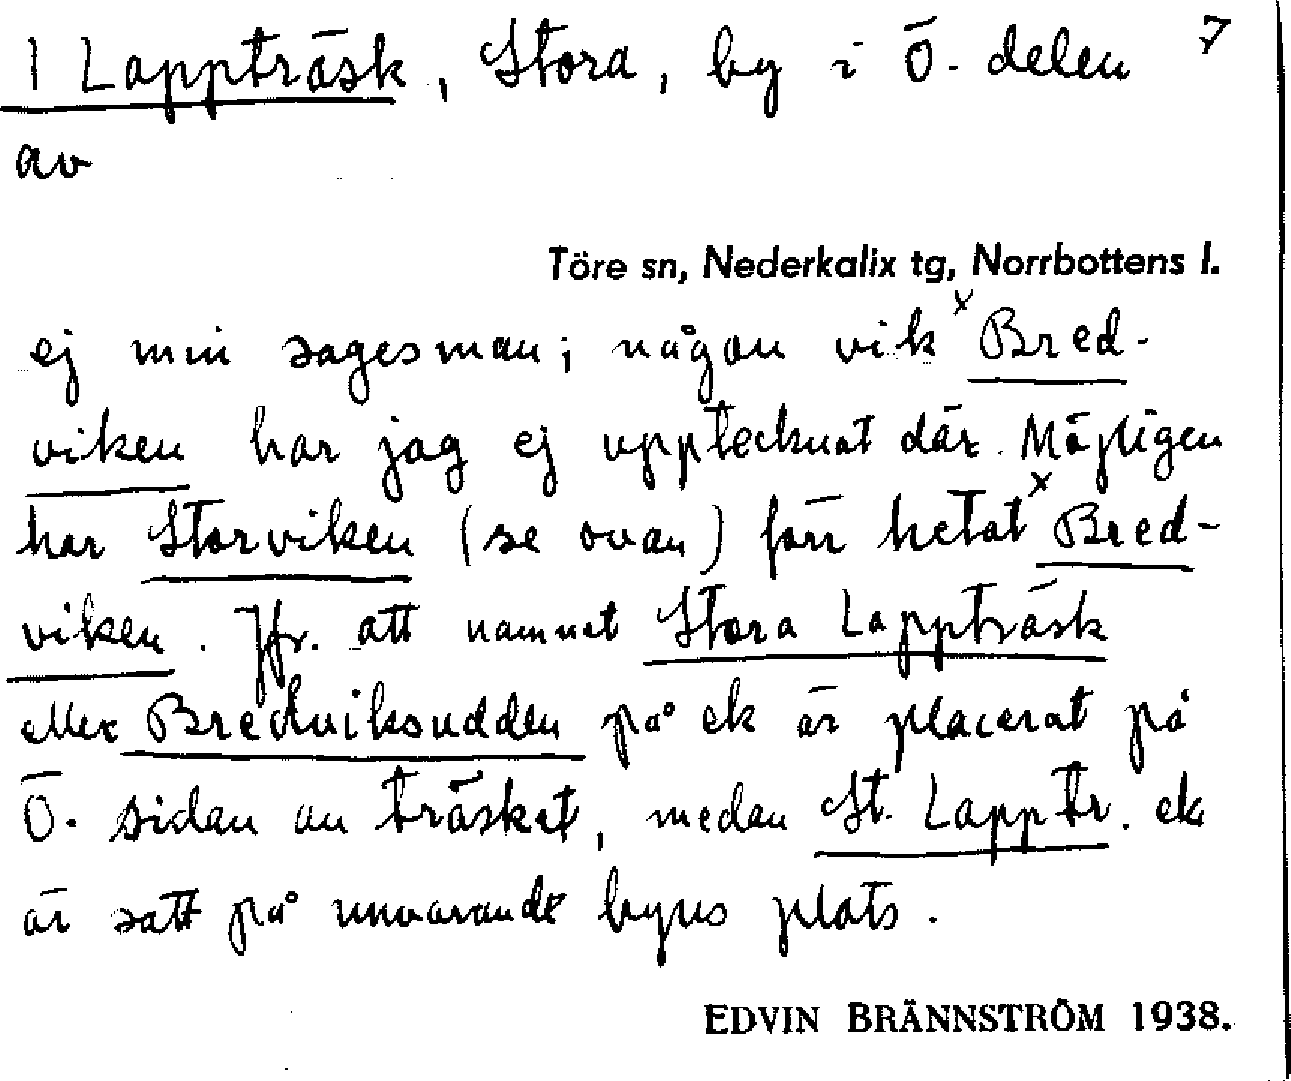 1 Lappträsk, Stora, by i Ö. delen 7
av
Töre sn, Nederkalix tg, Norrbottens l.
ej min sagesman; någon vik ˣBred-
viken har jag ej upptecknat där. Möjligen
har Storviken (se ovan) förr hetat ˣBred-
viken. Jfr. att namnet Stora Lappträsk
eller Bredviksudden på ek är placerat på
Ö. sidan av träsket, medan St. Lapptr. ek
är satt på nuvarande byns plats.
EDVIN BRÄNNSTRÖM 1938.